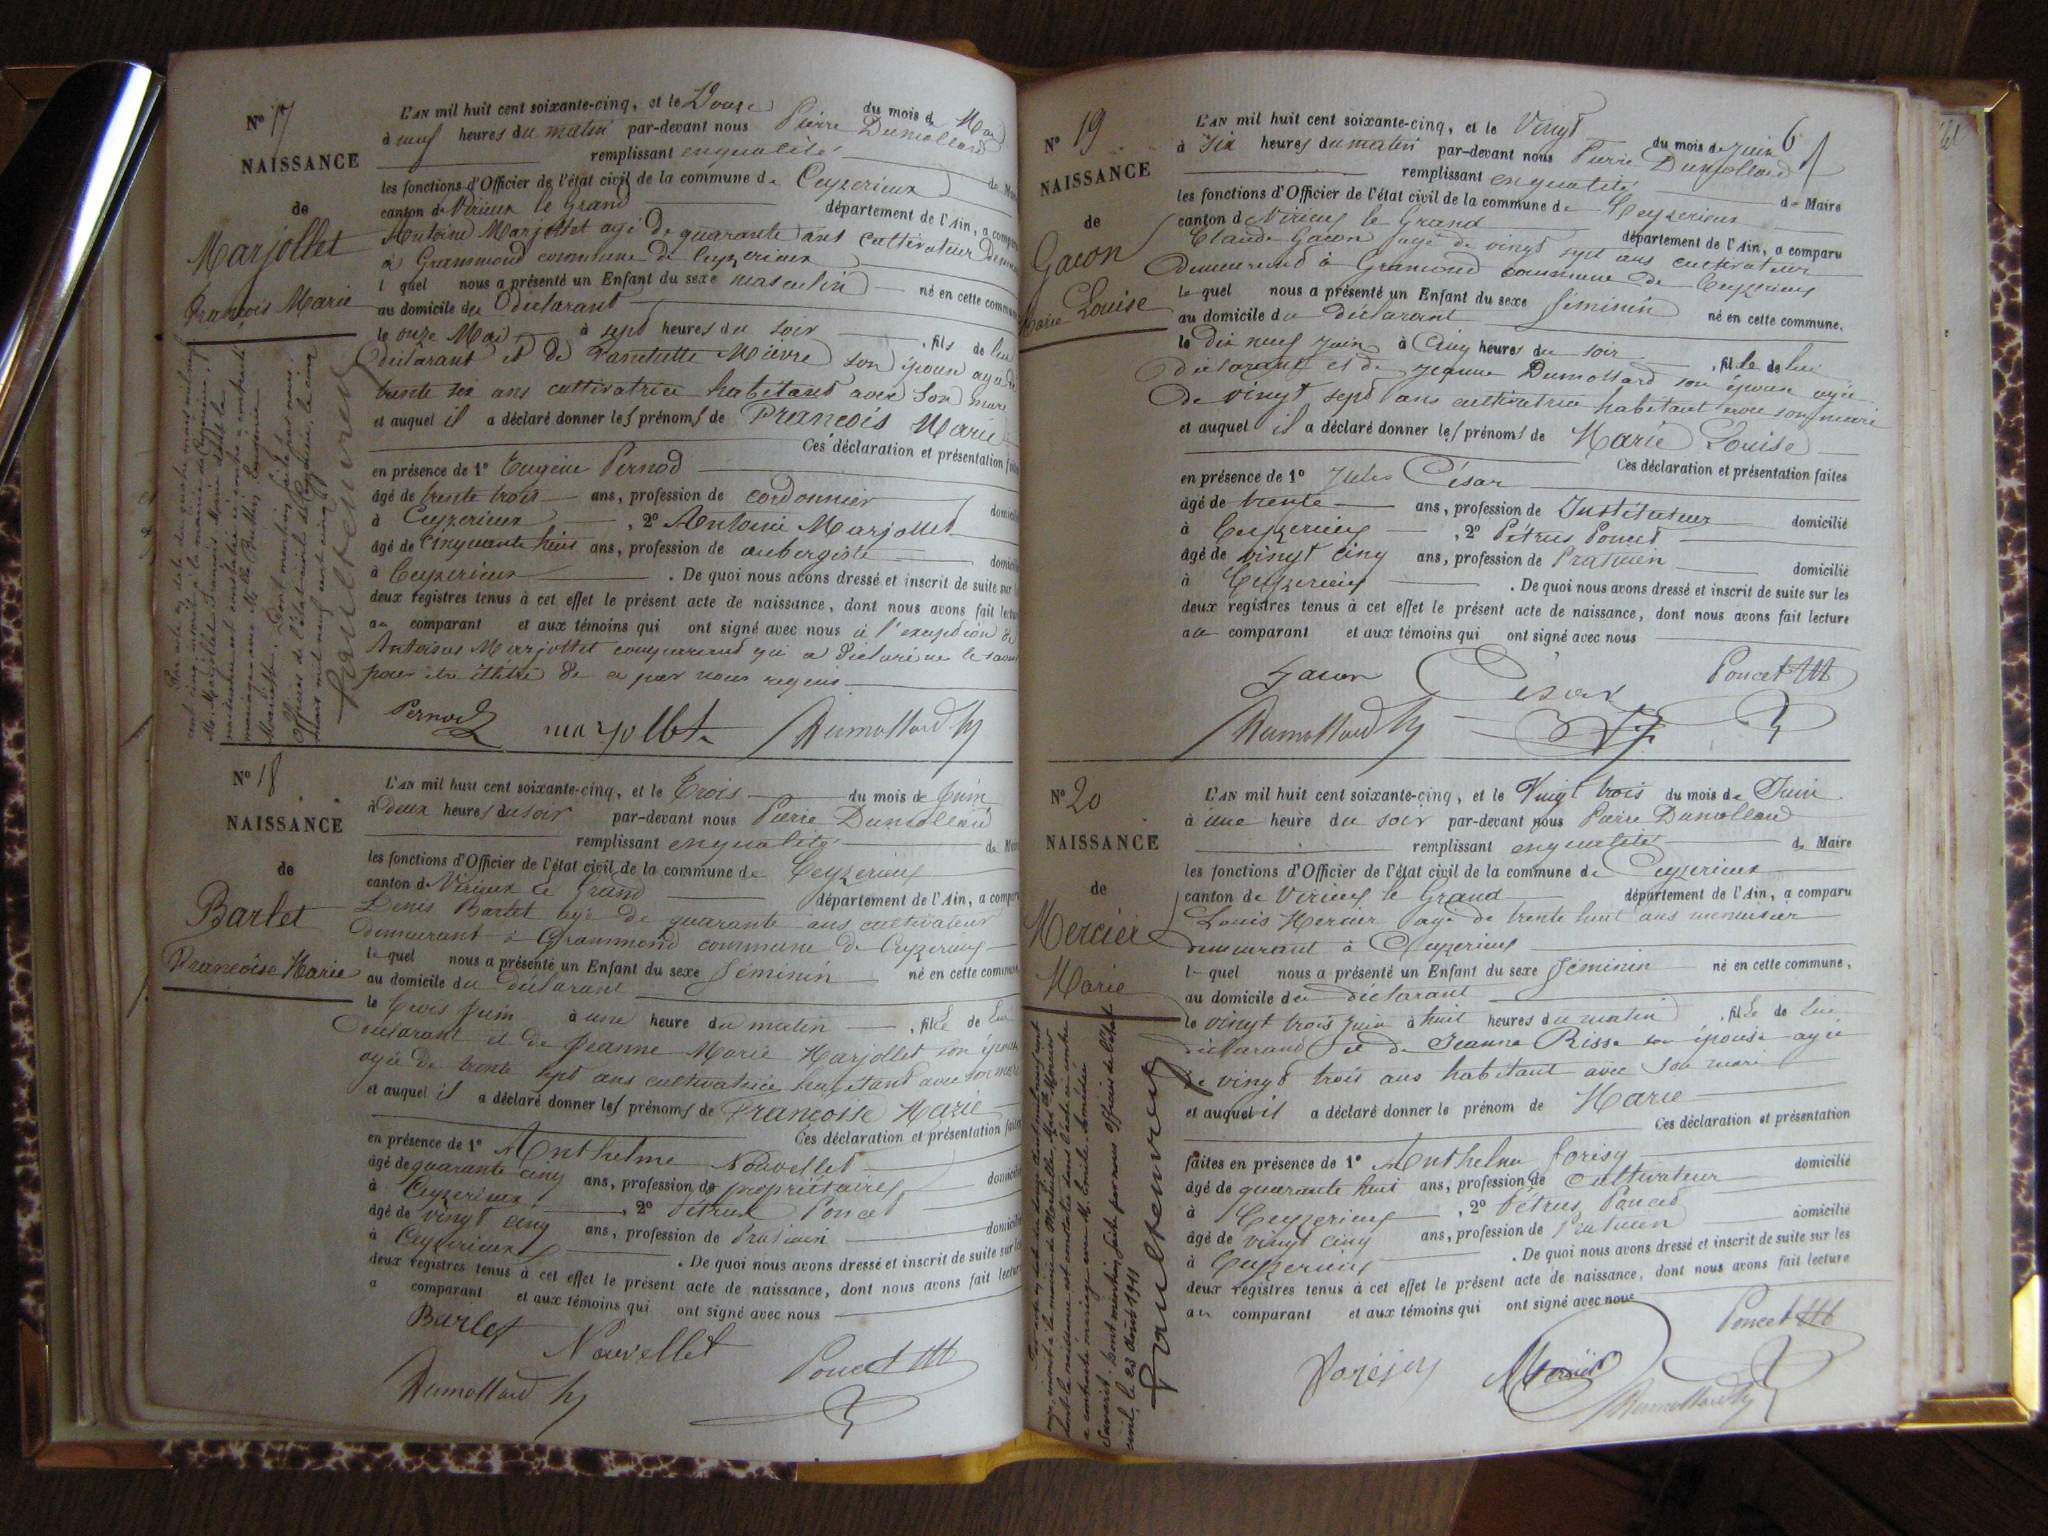 N° 17
NAISSANCE
de
Marjollet
François Marie
L'AN mil huit cent soixante-cinq, et le Douze du mois de Mai
à neuf heures du matin par-devant nous Pierre Dumollard
remplissant en qualité de Maire
les fonctions d'Officier de l'état civil de la commune de Ceyzerieux
canton de Virieux le Grand département de l'Ain, a comparu
Antoine Marjollet agé de quarante ans cultivateur
à Grammond commune de Ceyzerieux
lequel nous a présenté un Enfant du sexe masculin né en cette commune
au domicile du déclarant
le onze Mai à sept heures du soir, fils de lui
déclarant et de Fanchette Mièvre son épouse agée de
trente six ans cultivatrice habitant avec son mari
et auquel il a déclaré donner les prénoms de François Marie
Ces déclaration et présentation faites
en présence de 1° Eugène Pernod
âgé de trente trois ans, profession de cordonnier domicilié
à Ceyzerieux, 2° Antoine Marjollet
âgé de cinquante huit ans, profession de aubergiste domicilié
à Ceyzerieux. De quoi nous avons dressé et inscrit de suite sur les
deux registres tenus à cet effet le présent acte de naissance, dont nous avons fait lecture
au comparant et aux témoins qui ont signé avec nous à l'exception de
Antoine Marjollet comparant qui a déclaré ne le savoir
pour être illitré de ce par nous requis
Pernod marjollet Dumollard
N° 18
NAISSANCE
de
Barlet
Françoise Marie
L'AN mil huit cent soixante-cinq, et le Trois du mois de Juin
à deux heures du soir par-devant nous Pierre Dumollard
remplissant en qualité de Maire
les fonctions d'Officier de l'état civil de la commune de Ceyzerieux
canton de Virieux le Grand département de l'Ain, a comparu
Denis Barlet agé de quarante ans cultivateur
demeurant à Grammond commune de Ceyzerieux
lequel nous a présenté un Enfant du sexe féminin né en cette commune
au domicile du déclarant
le trois Juin à une heure du matin, fille de lui
déclarant et de Jeanne Marie Marjollet son épouse
agée de trente sept ans cultivatrice habitant avec son mari
et auquel il a déclaré donner les prénoms de Françoise Marie
Ces déclaration et présentation faites
en présence de 1° Anthelme Nouvellet
âgé de quarante cinq ans, profession de propriétaire domicilié
à Ceyzerieux, 2° Pétrus Poncet
âgé de vingt cinq ans, profession de Praticien domicilié
à Ceyzerieux. De quoi nous avons dressé et inscrit de suite sur les
deux registres tenus à cet effet le présent acte de naissance, dont nous avons fait lecture
a comparant et aux témoins qui ont signé avec nous
Barlet Nouvellet Poncet
Dumollard
N° 19
NAISSANCE
de
Gacon
Marie Louise
6
L'AN mil huit cent soixante-cinq, et le Vingt du mois de Juin
à six heures du matin par-devant nous Pierre Dumollard
remplissant en qualité de Maire
les fonctions d'Officier de l'état civil de la commune de Ceyzerieux
canton de Virieux le Grand département de l'Ain, a comparu
Claude Gacon agé de vingt sept ans cultivateur
demeurant à Gramond commune de Ceyzerieux
lequel nous a présenté un Enfant du sexe féminin né en cette commune.
au domicile du déclarant
le dix neuf Juin à cinq heures du soir, fille de lui
déclarant et de Jeanne Dumollard son épouse agée
de vingt sept ans cultivatrice habitant avec son mari
et auquel il a déclaré donner les prénoms de Marie Louise
Ces déclaration et présentation faites
en présence de 1° Jules César
âgé de trente ans, profession de Instituteur domicilié
à Ceyzerieux, 2° Pétrus Poncet
âgé de vingt cinq ans, profession de Praticien domicilié
à Ceyzerieux. De quoi nous avons dressé et inscrit de suite sur les
deux registres tenus à cet effet le présent acte de naissance, dont nous avons fait lecture
au comparant et aux témoins qui ont signé avec nous
Gacon César Poncet
Dumollard
N° 20
NAISSANCE
de
Mercier
Marie
L'AN mil huit cent soixante-cinq, et le Vingt trois du mois de Juin
à une heure du soir par-devant nous Pierre Dumollard
remplissant en qualité de Maire
les fonctions d'Officier de l'état civil de la commune de Ceyzerieux
canton de Virieux le Grand département de l'Ain, a comparu
Louis Mercier agé de trente huit ans menuisier
demeurant à Ceyzerieux
lequel nous a présenté un Enfant du sexe féminin né en cette commune.
au domicile du déclarant
le vingt trois Juin à huit heures du matin, fille de lui
déclarant et de Jeanne Risse son épouse agée
de vingt trois ans habitant avec son mari
et auquel il a déclaré donner le prénom de Marie
Ces déclaration et présentation
faites en présence de 1° Anthelme Jorisy domicilié
âgé de quarante huit ans, profession de Cultivateur
à Ceyzerieux, 2° Pétrus Poncet
âgé de vingt cinq ans, profession de Praticien domicilié
à Ceyzerieux. De quoi nous avons dressé et inscrit de suite sur les
deux registres tenus à cet effet le présent acte de naissance, dont nous avons fait lecture
au comparant et aux témoins qui ont signé avec nous
Poncet
Mercier
Dumollard
civil, le 23 août 1911